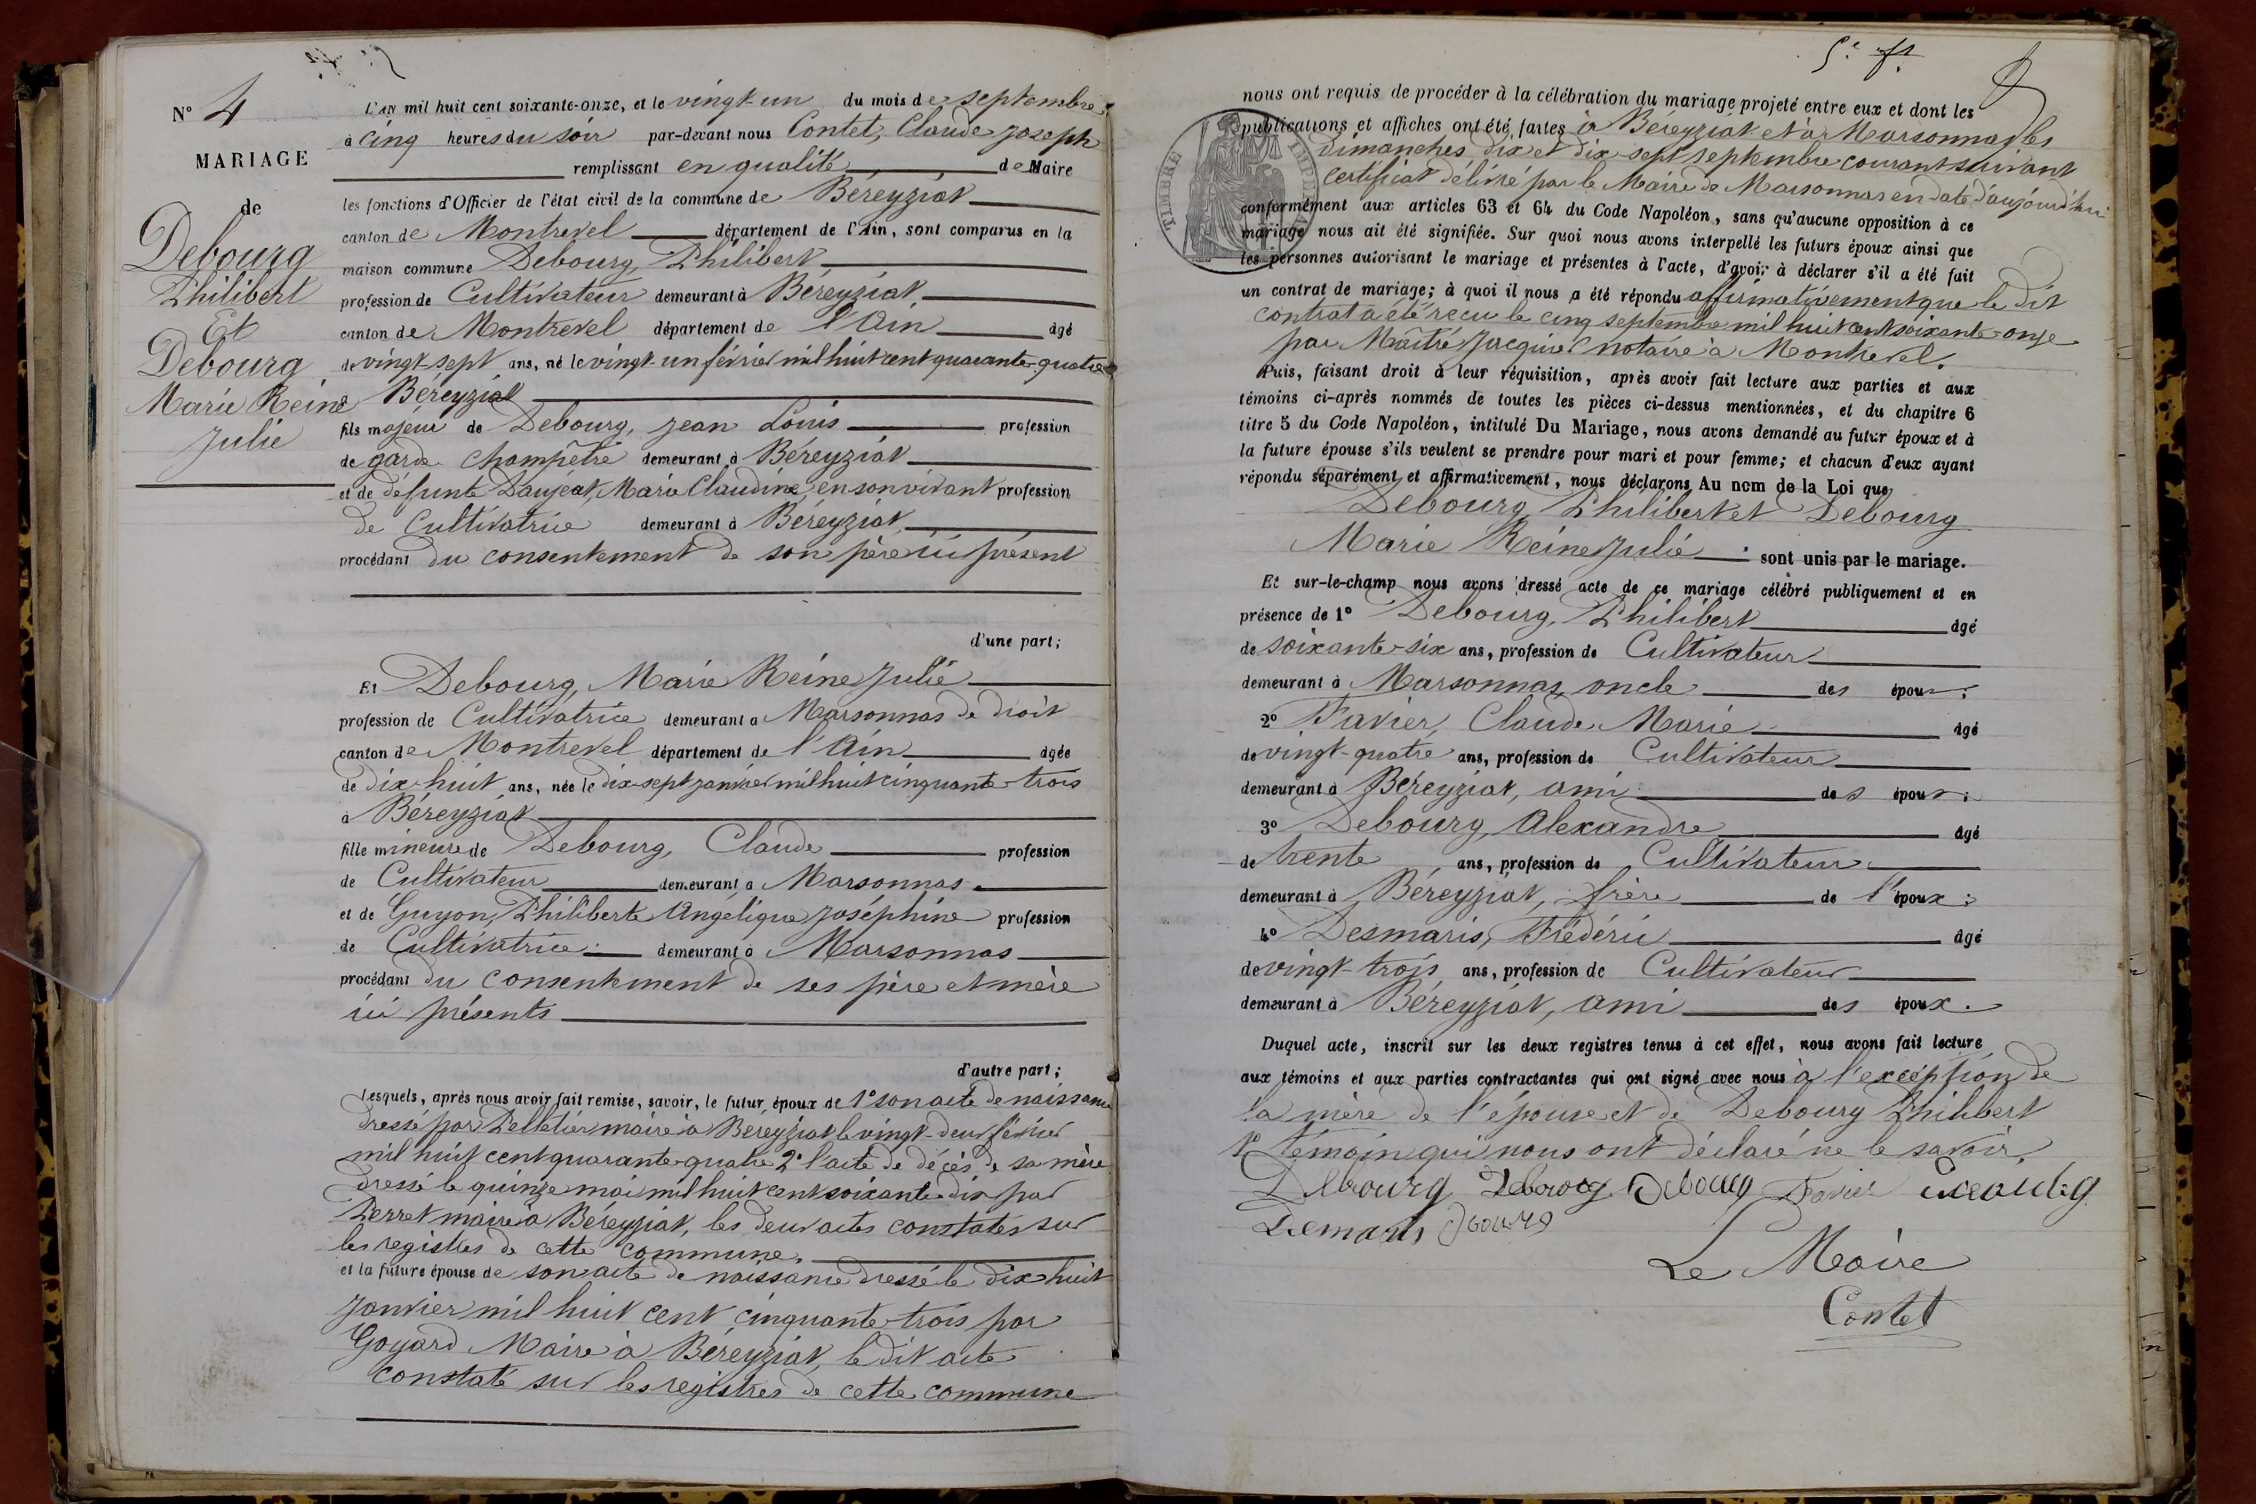 N° 4
MARIAGE
de
Debourg
Philibert
Et
Debourg
Marie Reine
Julie
L'AN mil huit cent soixante-onze, et le vingt-un du mois de septembre
à cinq heures du soir par-devant nous Contet, Claude Joseph
remplissant en qualité de Maire
les fonctions d'Officier de l'état civil de la commune de Béreyziat
canton de Montrevel département de l'Ain, sont comparus en la
maison commune Debourg, Philibert
profession de Cultivateur demeurant à Béreyziat
canton de Montrevel département de l'Ain âgé
de vingt-sept ans, né le vingt-un février mil huit cent quarante-quatre
à Béreyziat
fils majeur de Debourg, Jean Louis profession
de garde champêtre demeurant à Béreyziat
et de défunte Daujeat, Marie Claudine, en son vivant profession
de Cultivatrice demeurant à Béreyziat
procédant du consentement de son père ici présent
d'une part;
Et Debourg, Marie Reine Julie
profession de Cultivatrice demeurant à Marsonnas de droit
canton de Montrevel département de l'Ain âgée
de dix-huit ans, née le dix-sept janvier mil huit cinquante-trois
à Béreyziat
fille mineure de Debourg, Claude profession
de Cultivateur demeurant à Marsonnas
et de Guyon, Philiberte Angélique Joséphine profession
de Cultivatrice demeurant à Marsonnas
procédant du consentement de ses père et mère
ici présents
d'autre part;
Lesquels, après nous avoir fait remise, savoir, le futur époux de 1° son acte de naissance
dressé par Pelletier maire à Béreyziat le vingt-deux février
mil huit cent quarante-quatre 2° l'acte de décès de sa mère
dressé le quinze mai mil huit cent soixante-dix par
Perret maire à Béreyziat, les deux actes constatés sur
les registres de cette commune.
et la future épouse de son acte de naissance dressé le dix-huit
janvier mil huit cent cinquante-trois par
Goyard Maire à Béreyziat, le dit acte
constaté sur les registres de cette commune
5e ft
nous ont requis de procéder à la célébration du mariage projeté entre eux et dont les
publications et affiches ont été faites à Béreyziat et à Marsonnas les
dimanches dix et dix-sept septembre courant suivant
certificat délivré par le Maire de Marsonnas en date d'aujourd'hui
TIMBRE IMPERIAL
conformément aux articles 63 et 64 du Code Napoléon, sans qu'aucune opposition à ce
mariage nous ait été signifiée. Sur quoi nous avons interpellé les futurs époux ainsi que
les personnes autorisant le mariage et présentes à l'acte, d'avoir à déclarer s'il a été fait
un contrat de mariage; à quoi il nous a été répondu affirmativement que le dit
contrat a été reçu le cinq septembre mil huit cent soixante-onze
par Maître Jacquier notaire à Montrevel.
Puis, faisant droit à leur réquisition, après avoir fait lecture aux parties et aux
témoins ci-après nommés de toutes les pièces ci-dessus mentionnées, et du chapitre 6
titre 5 du Code Napoléon, intitulé Du Mariage, nous avons demandé au futur époux et à
la future épouse s'ils veulent se prendre pour mari et pour femme; et chacun d'eux ayant
répondu séparément et affirmativement, nous déclarons Au nom de la Loi que
Debourg Philibert et Debourg
Marie Reine Julie sont unis par le mariage.
Et sur-le-champ nous avons dressé acte de ce mariage célébré publiquement et en
présence de 1° Debourg, Philibert âgé
de soixante-six ans, profession de Cultivateur
demeurant à Marsonnas, oncle des époux;
2° Favier, Claude Marie âgé
de vingt-quatre ans, profession de Cultivateur
demeurant à Béreyziat, ami des époux;
3° Debourg, Alexandre âgé
de trente ans, profession de Cultivateur
demeurant à Béreyziat, frère de l'époux;
4° Desmaris, Frédéric âgé
de vingt-trois ans, profession de Cultivateur
demeurant à Béreyziat, ami des époux.
Duquel acte, inscrit sur les deux registres tenus à cet effet, nous avons fait lecture
aux témoins et aux parties contractantes qui ont signé avec nous à l'exception de
la mère de l'épouse et de Debourg Philibert
1er témoin qui nous ont déclaré ne le savoir.
Debourg Debourg Debourg Favier
Demaris
Le Maire
Contet